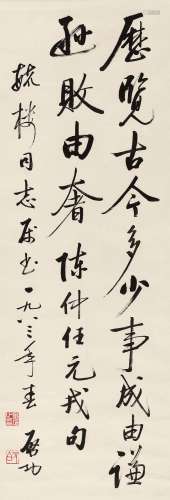 歷覽古今多少事成由謙
逊敗由奢 陳仲弘元戎句
毓楼同志属书一九八三年春 启功